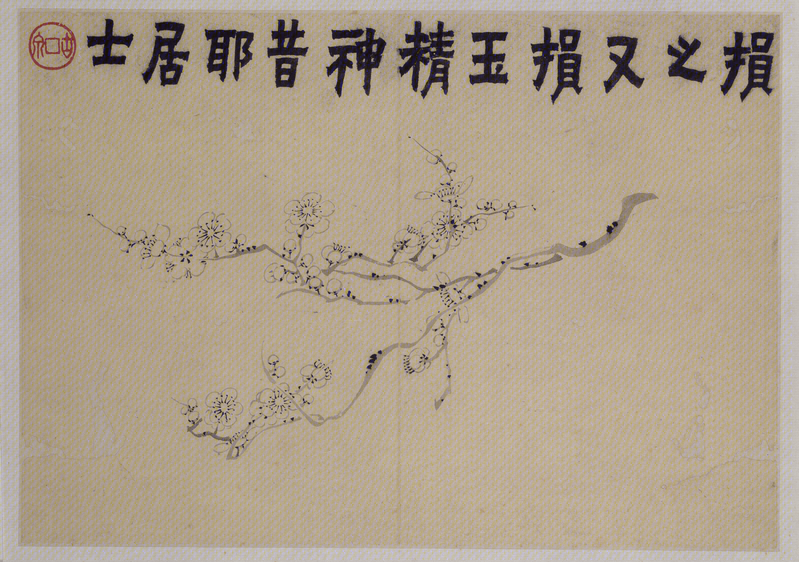 損之又損玉精神昔耶居士